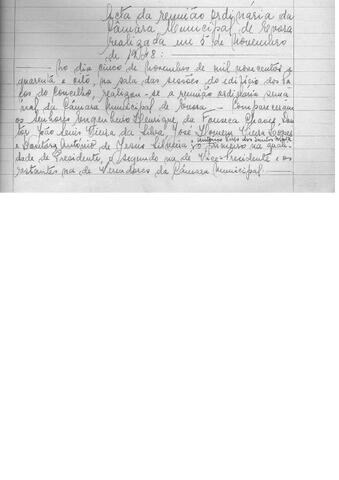 Acta da reunião ordinária da
Câmara Municipal de Evora
realizada em 5 de Novembro
de 1948:
No dia cinco de Novembro de mil novecentos e
quarenta e oito, na sala das sessões do edificio dos Pa
ços do Concelho, realizou-se a reunião ordinária sema
nal da Câmara Municipal de Evora. Compareceram
os senhores Engenheiro Henrique da Fonseca Chaves, San
João Luis Vieira da Silva, José Homem Vieira
António Luis dos Santos
e Doutor António de Jesus Silveira; o primeiro na quali
dade de Presidente, o segundo na de Vice-Presidente e os
restantes na de Vereadores da Câmara Municipal.